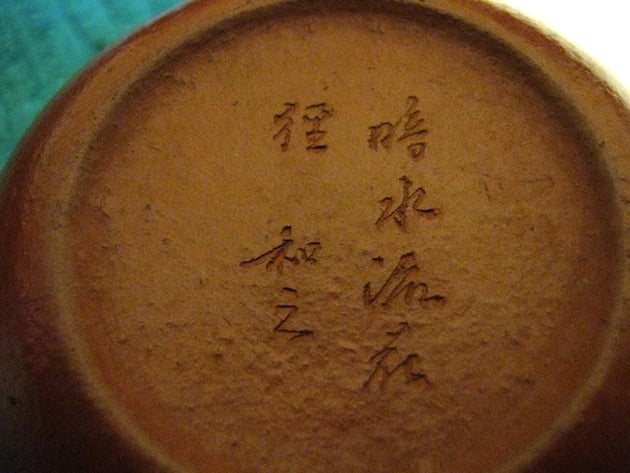 暗水流花
徑 和之